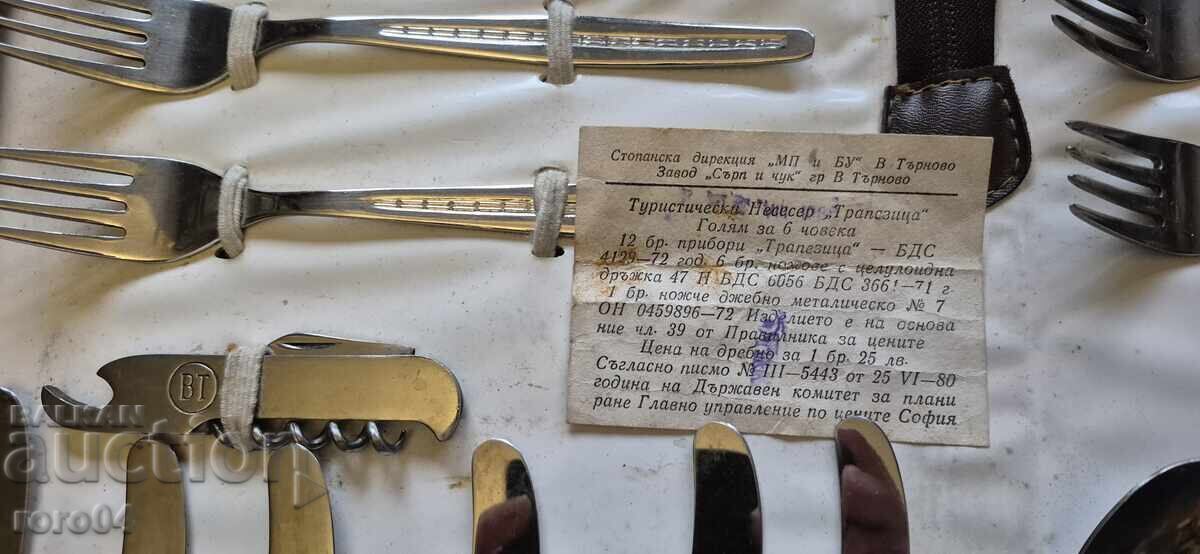 Стопанска дирекция „МП и БУ" В Търново
Завод „Сърп и чук" гр В Търново
Туристически Несесер „Трапезица"
Голям за 6 човека
12 бр. прибори „Трапезица" — БДС
4129—72 год. 6 бр. ножове с целулоидна
дръжка 47 Н БДС 6056 БДС 3661—71 г.
1 бр. ножче джебно металическо № 7
ОН 0459896—72 Изделието е на основа
ние чл. 39 от Правилника за цените
Цена на дребно за 1 бр. 25 лв.
Съгласно писмо № III—5443 от 25 VI—80
година на Държавен комитет за плани
ране Главно управление по цените София
ВТ
Balkan
auction
roro04